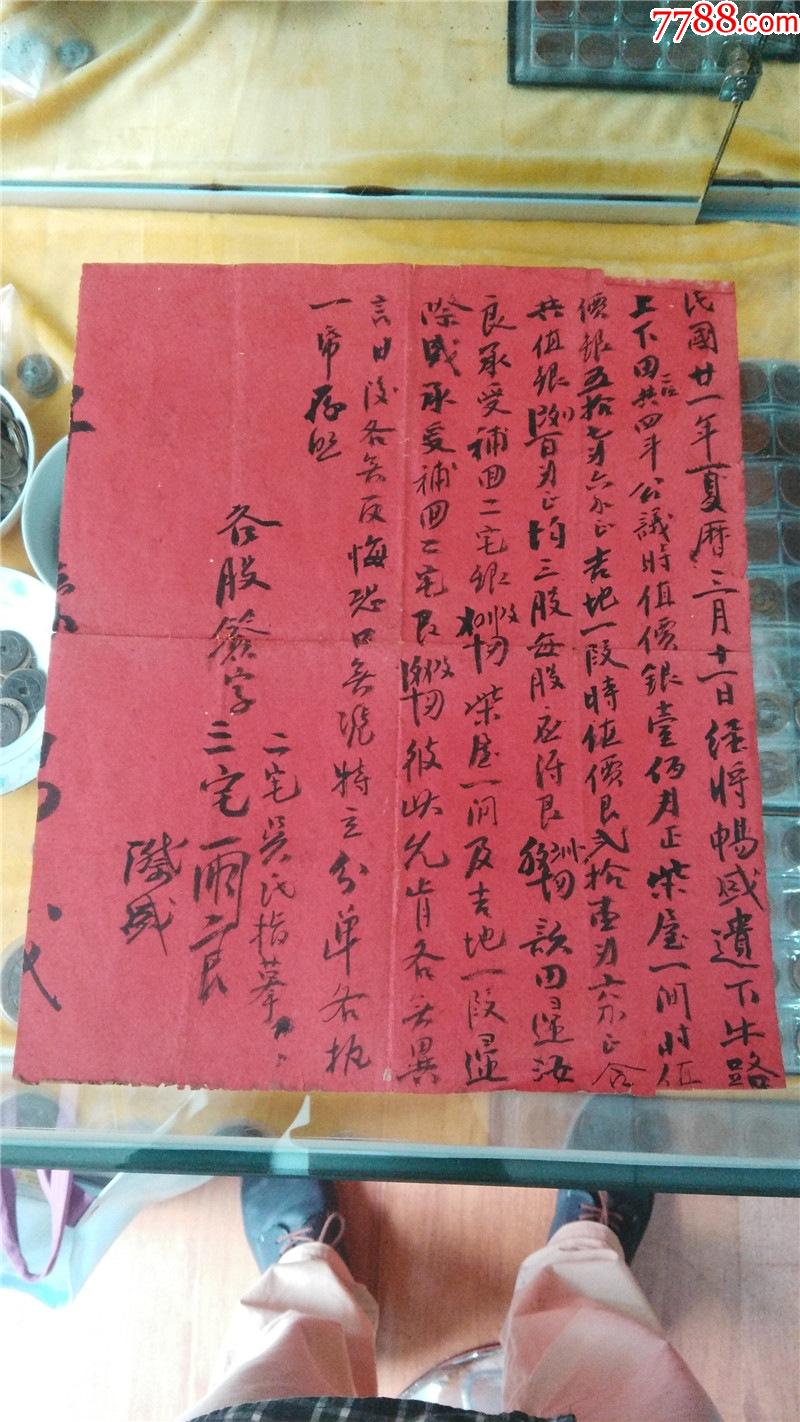 7788.com
民國廿一年夏曆三月十一日經將暢盛遺下牛路
上下田共二邱四斗公議時值價銀壹佰員正柴屋一間時值
價銀五拾七員六毛正吉地一段時值價艮弍拾壹員六毛正合
共值銀員正均三股每股应得艮該田歸汝
良承受補回二宅銀柴屋一間及吉地一段歸
際盛承受補回二宅艮彼此允肯各無異
言日後各無反悔恐口無憑特立分單各执
一帋存照
各股簽字
二宅吳氏指摹
三宅
際盛